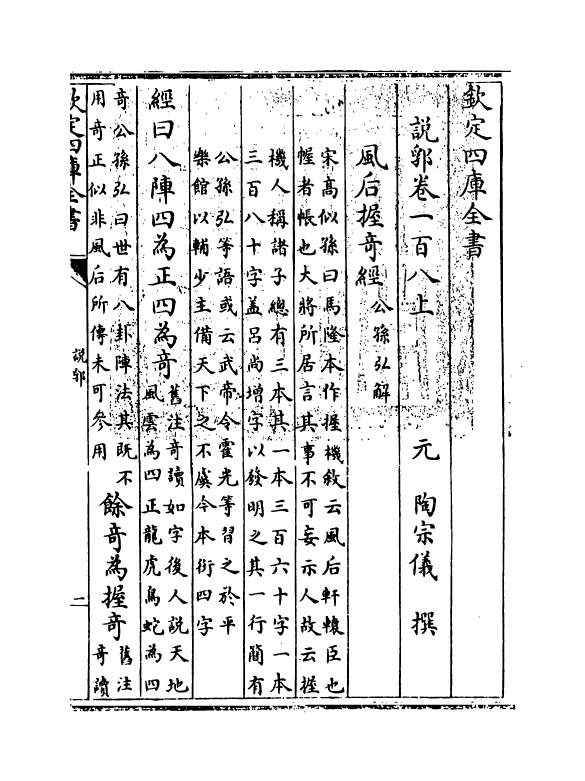 欽定四庫全書
說郛卷一百八上 元 陶宗儀 撰
風后握奇經 公孫弘解
宋髙似孫曰馬隆本作握機敘云風后軒轅臣也
幄者帳也大將所居言其事不可妄示人故云握
機人稱諸子總有三本其一本三百六十字一本
三百八十字盖呂尚增字以發明之其一行簡有
公孫弘等語或云武帝令霍光等習之於平
樂館以輔少主備天下之不虞今本衍四字
經曰八陣四為正四為奇
舊注奇讀如字後人說天地
風雲為四正龍虎鳥蛇為四
奇公孫弘曰世有八卦陣法其既不
用奇正似非風后所傳未可參用
餘奇為握奇
舊注
奇讀
欽定四庫全書
說郛
二